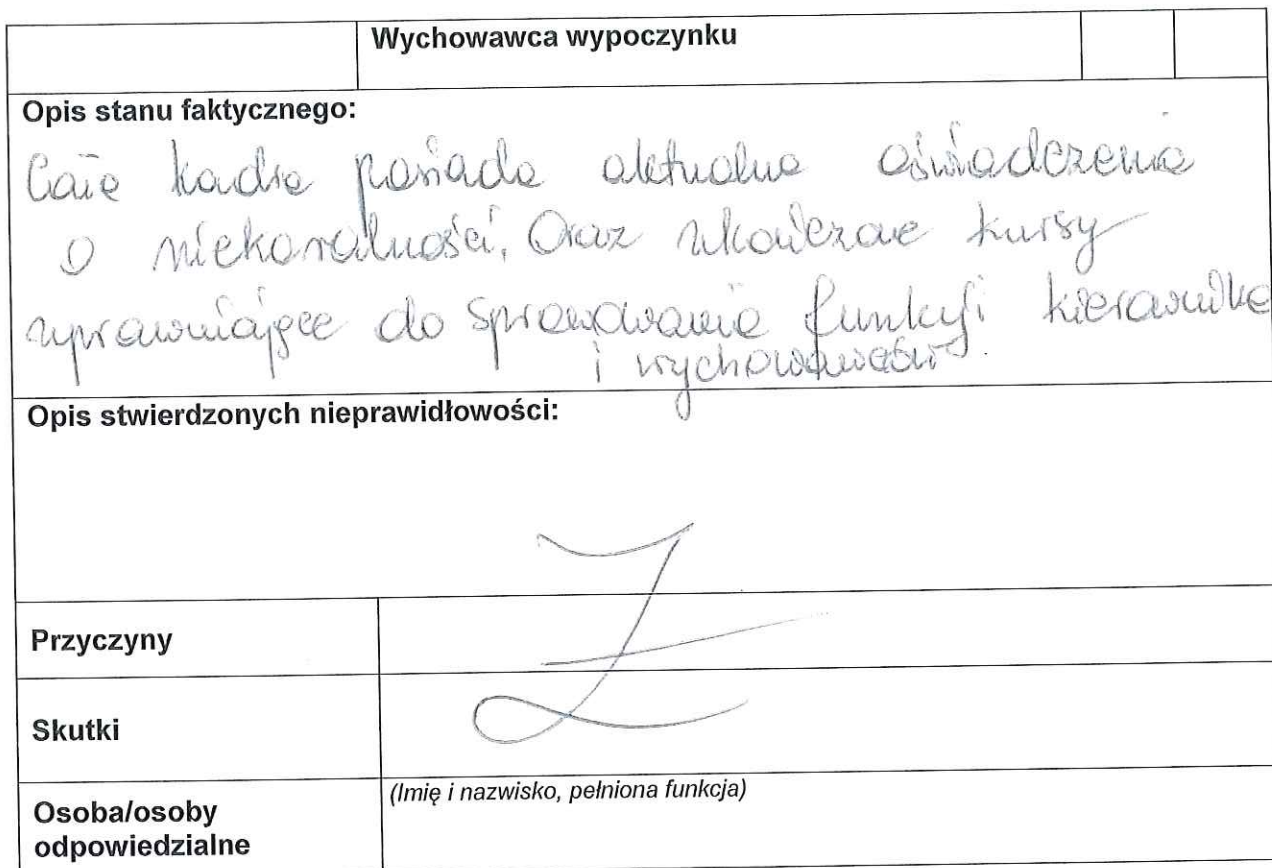 Wychowawca wypoczynku
Opis stanu faktycznego:
Cała kadra posiada aktualne oświadczenia
o niekaralności, Oraz ukończone kursy
uprawniające do sprawowania funkcji kierownika
i wychowawców.
Opis stwierdzonych nieprawidłowości:
Przyczyny
Skutki
Osoba/osoby
odpowiedzialne
(Imię i nazwisko, pełniona funkcja)